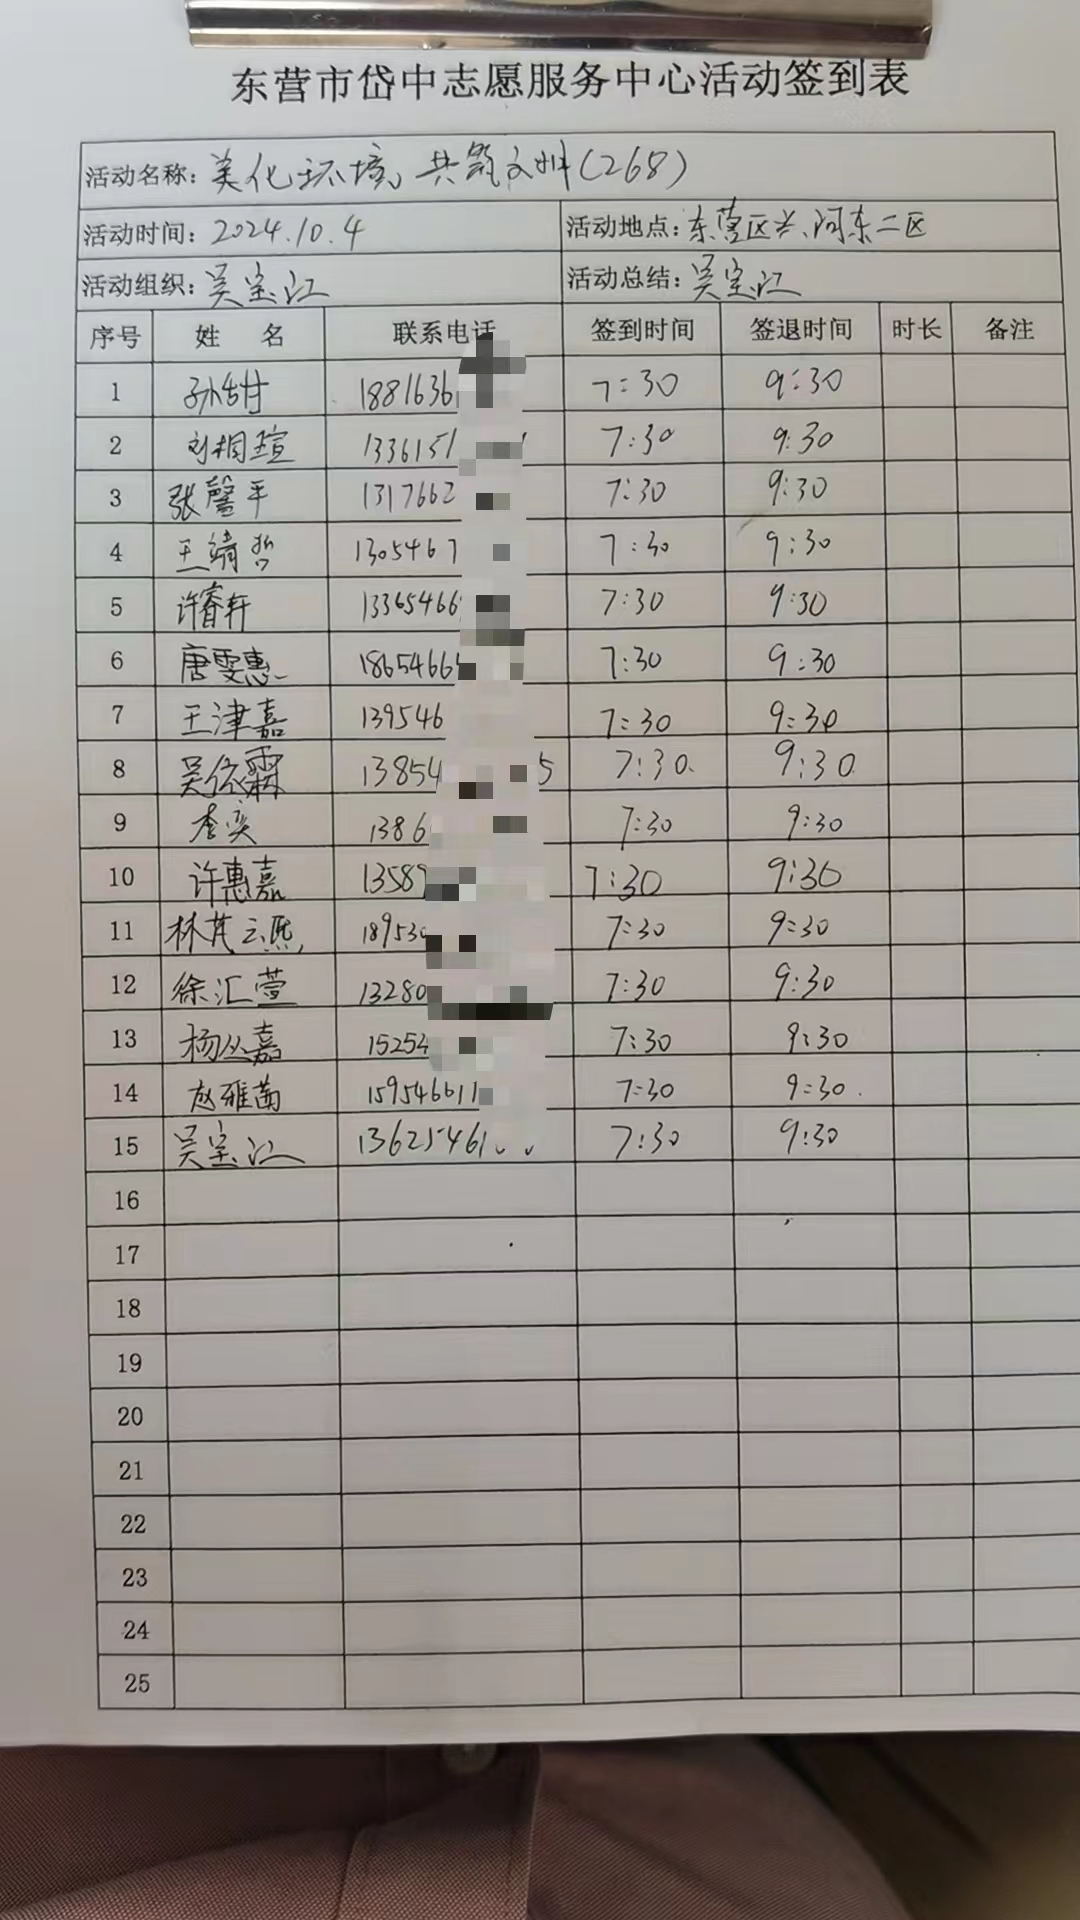 东营市岱中志愿服务中心活动签到表
活动名称: 美化环境，共筑文明(268)
活动时间: 2024.10.4 活动地点: 东营区 河东二区
活动组织: 吴宝江 活动总结: 吴宝江
序号 姓 名 联系电话 签到时间 签退时间 时长 备注
1 1881636 7:30 9:30
2 刘桐瑄 1336151 7:30 9:30
3 张馨平 1317662 7:30 9:30
4 王靖哲 1305467 7:30 9:30
5 许睿轩 13365466 7:30 9:30
6 唐雯惠 1865466 7:30 9:30
7 王津嘉 139546 7:30 9:30
8 吴依霖 13854 5 7:30 9:30
9 李奕 1386 7:30 9:30
10 许惠嘉 13589 7:30 9:30
11 林芃云熙 18953 7:30 9:30
12 徐汇萱 13280 7:30 9:30
13 杨丛嘉 15254 7:30 9:30
14 赵雅菡 159546611 7:30 9:30
15 吴宝江 13625461 7:30 9:30
16
17
18
19
20
21
22
23
24
25